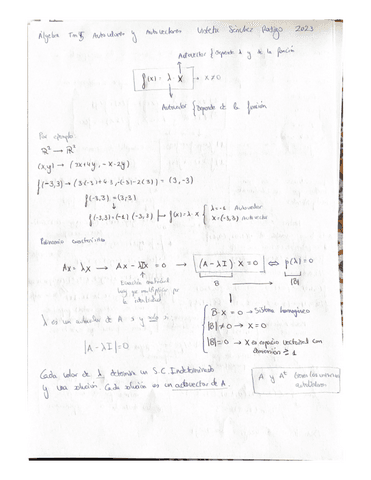 Algebra Tm8 Autovalores y Autovectores Valeria Sánchez 2023
Autovector { Depende λ y de la función
f(x) = λ X → X ≠ 0
Autovalor { Depende de la función
Por ejemplo:
R² → R²
(x,y) → (3x+4y, -x-2y)
f(-3,3) → (3·(-3)+4·3, -(-3)-2(3)) = (3,-3)
f(-3,3) = (3,-3)
f(-3,3) = (-1) (-3,3) → f(x) = λ·x { λ=-1 Autovalor
X = (-3,3) Autovector
Polinomio característico
Ax = λx → Ax - λIx = 0 → (A - λI)·X = 0 ⇔ p(λ) = 0
B |B|
Ecuación matricial
hay que multiplicar por
la identidad
λ es un autovalor de A si y solo si
|A - λI| = 0
B·X = 0 → Sistema homogéneo
|B| ≠ 0 → X = 0
|B| = 0 → X es espacio vectorial con
dimensión ≥ 1
Cada valor de λ determina un S.C. Indeterminado
y una solución. Cada solución es un autovector de A.
A y Aᵗ tienen los mismos
autovalores